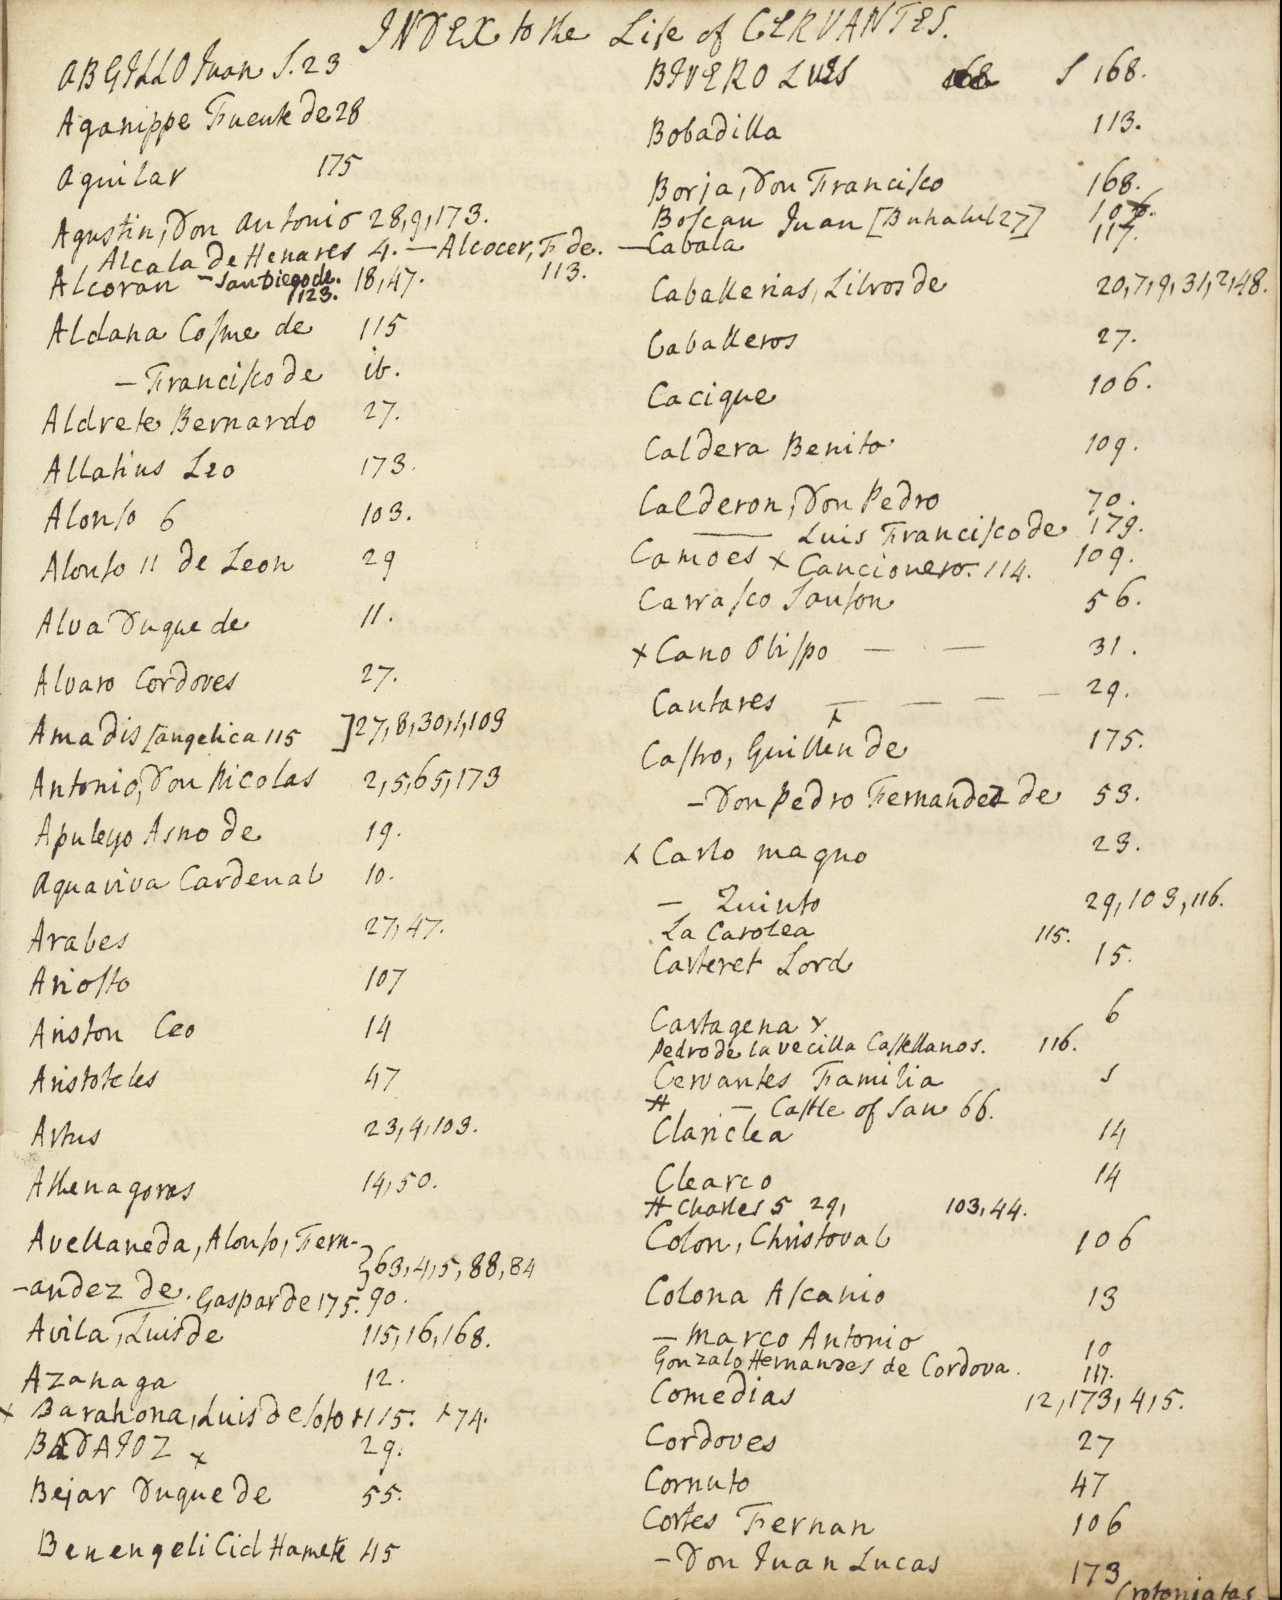 INDEX to the Life of CERVANTES.
ABGILLO Juan S. 23
Aganippe Fuente de 28
Aguilar 175
Agustin, Don Antonio 28, 9, 173.
Alcala de Henares 4. — Alcocer, F de. 113.
Alcoran — San Diego de. 123. 18, 47.
Aldana Cosme de 115
— Francisco de ib.
Aldrete Bernardo 27.
Allatius Leo 173.
Alonso 6 103.
Alonso 11 de Leon 29
Alva Duque de 11.
Alvaro Cordoves 27.
Amadis [angelica 115 ] 27, 8, 30, 1, 103
Antonio, Don Nicolas 2, 5, 65, 173
Apuleyo Asno de 19.
Aquaviva Cardenal 10.
Arabes 27, 47.
Ariosto 107
Ariston Ceo 14
Aristoteles 47
Artus 23, 4, 103.
Athenagoras 14, 50.
Avellaneda, Alonso, Fern-
-andez de. } 63, 4, 5, 88, 84
Gaspar de 175. 90.
Avila, Luis de 115, 16, 168.
Azanaga 12.
x Barahona, Luis de Soto + 115. + 74.
BADAJOZ x 29.
Bejar Duque de 55.
Benengeli Cid Hamete 45
BIVERO LUIS S 168.
Bobadilla 113.
Borja, Don Francisco 168.
Boscan Juan [Buhalul 27]
— Cabala 117.
Caballerias, Libros de 20, 7, 9, 31, 2, 48.
Caballeros 27.
Cacique 106.
Caldera Benito 109.
Calderon, Don Pedro 70.
—— Luis Francisco de 179.
Camoes x Cancionero. 114. 109.
Carrasco Sanson 56.
x Cano Obispo — — 31.
Cantares — — — — 29.
Castro, Guillen de 175.
— Don Pedro Fernandez de 53.
x Carlo magno 23.
— Quinto 29, 103, 116.
La Carolea 115.
Carteret Lord 15.
Cartagena x 6
Pedro de la vecilla Castellanos. 116.
Cervantes Familia 5
# — Castle of San 66.
Clariclea 14
Clearco 14
# Charles 5 29, 103, 44.
Colon, Christoval 106
Colona Ascanio 13
— Marco Antonio 10
Gonzalo Hernandes de Cordova. 117.
Comedias 12, 173, 4, 5.
Cordoves 27
Cornuto 47
Cortes Fernan 106
— Don Juan Lucas 173
Crotoniatas